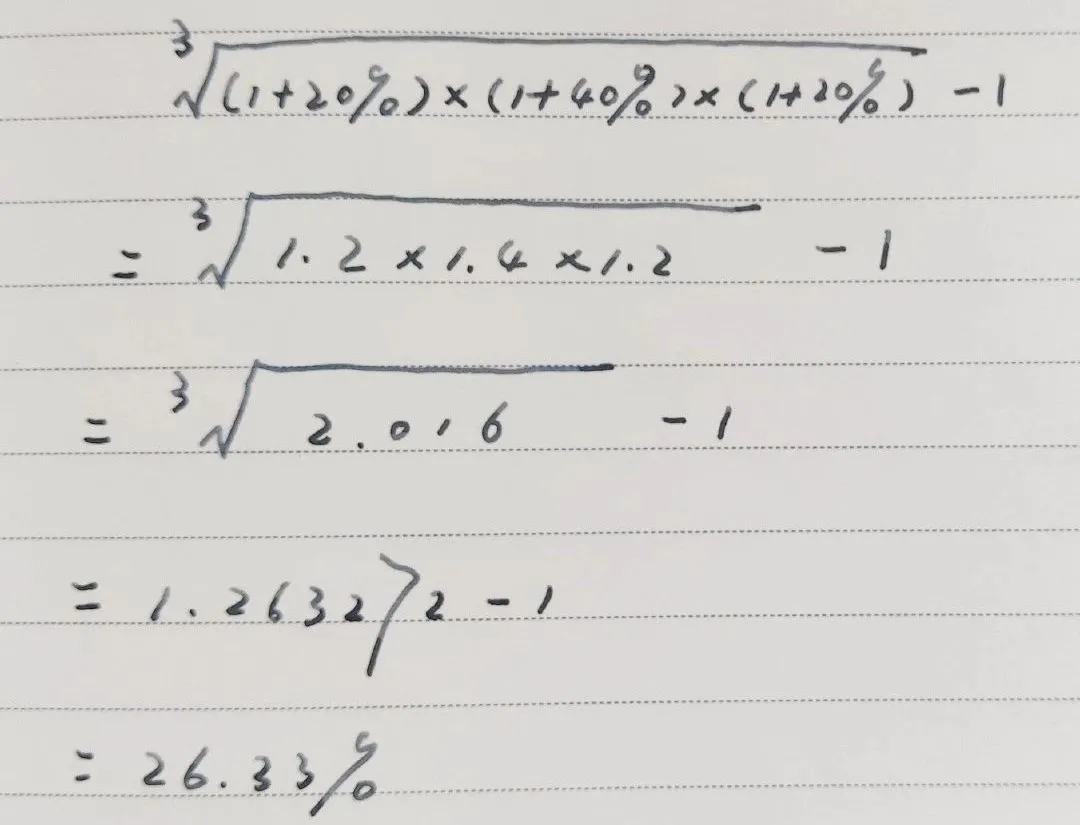 ∛(1+20%)×(1+40%)×(1+20%) -1
= ∛1.2×1.4×1.2 -1
= ∛2.016 -1
= 1.263272-1
= 26.33%